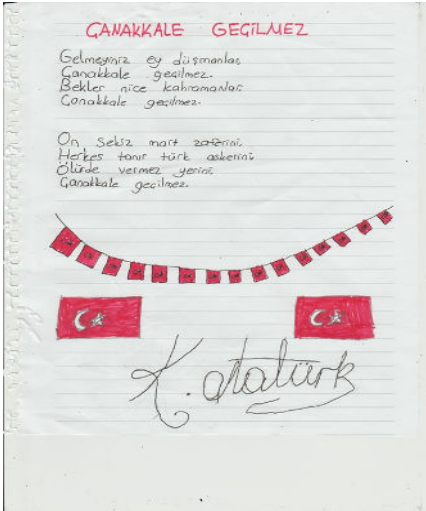 ÇANAKKALE GEÇİLMEZ
Gelmeyiniz ey düşmanlar
Çanakkale geçilmez.
Bekler nice kahramanlar
Çanakkale geçilmez.
On Sekiz mart zaferini
Herkes tanır türk askerini
Ölürde vermez yerini
Çanakkale geçilmez.
K. Atatürk